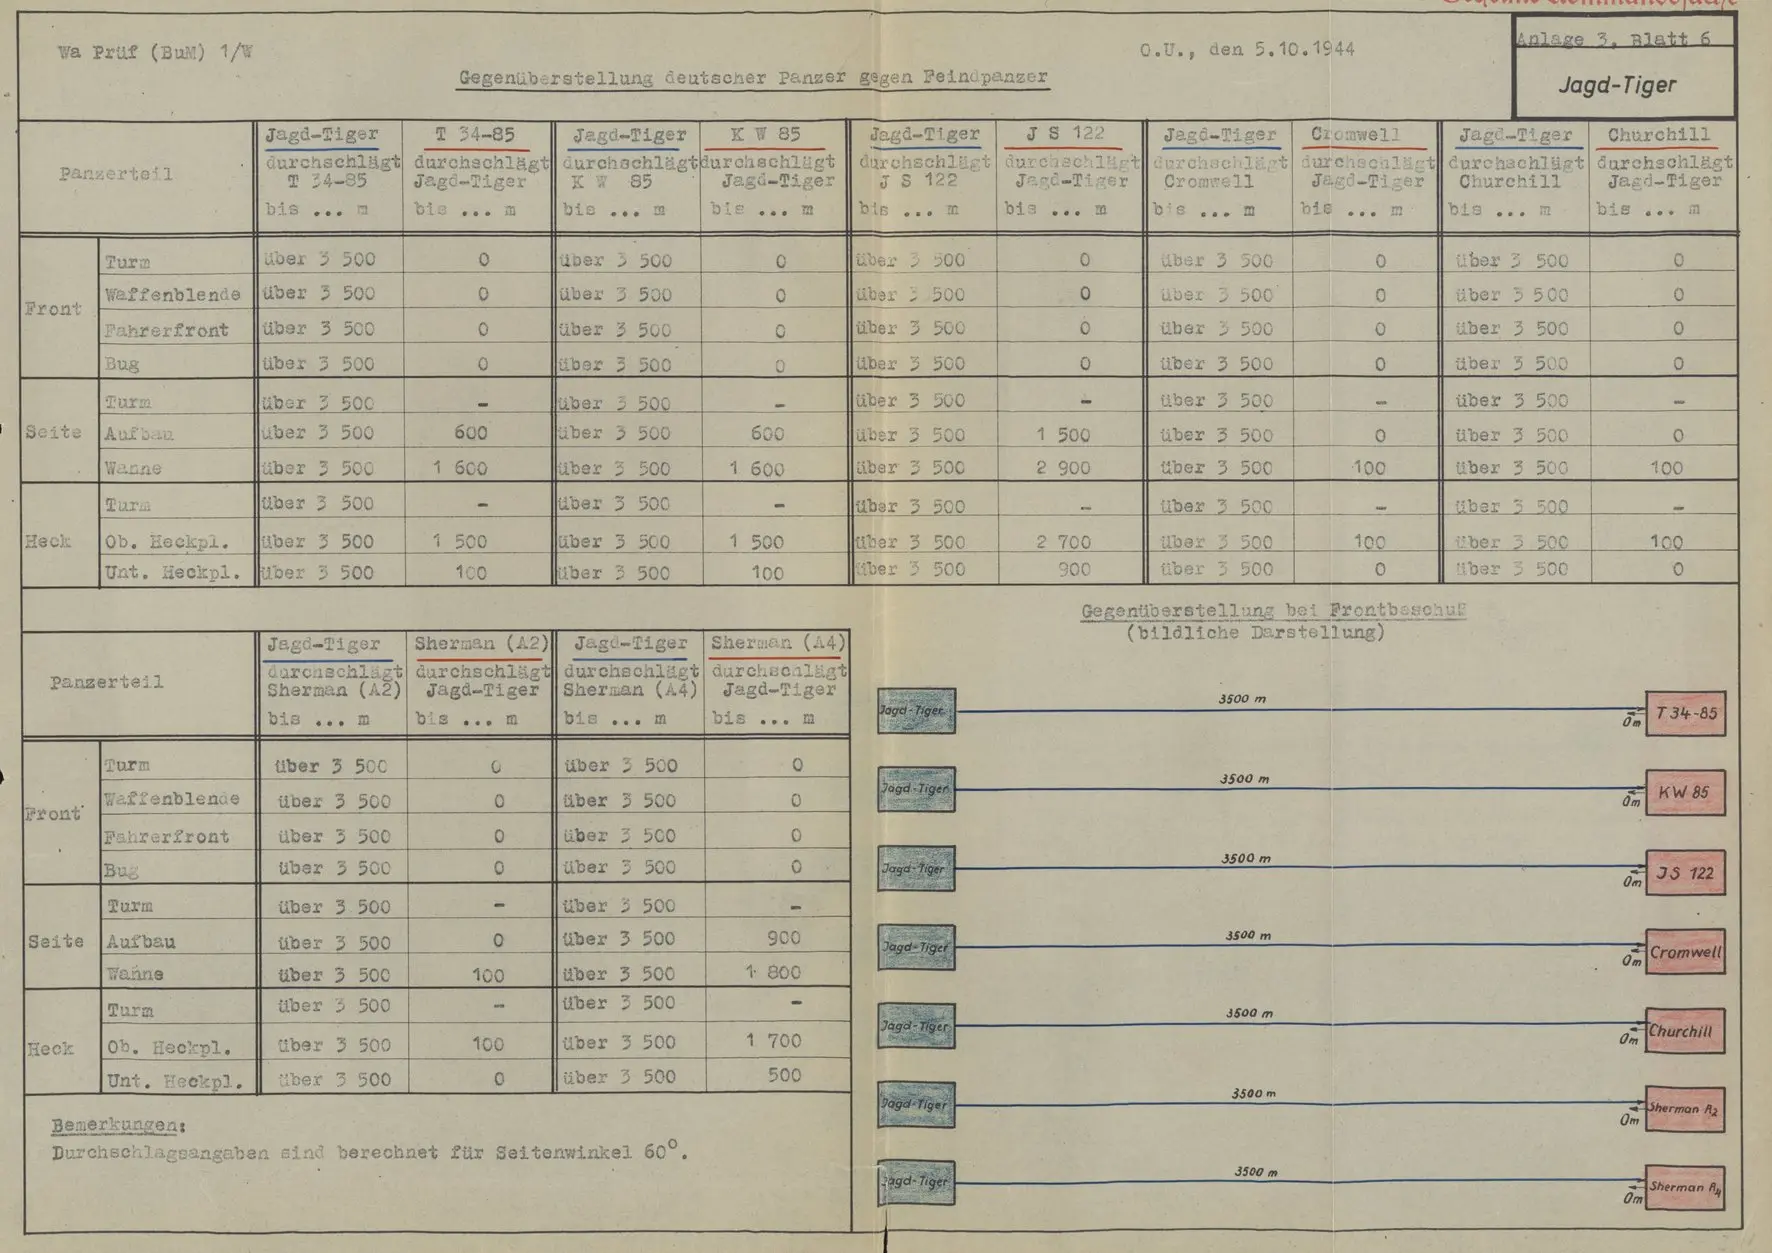 Geheime Kommandosache
Wa Prüf (BuM) 1/W
O.U., den 5.10.1944
Anlage 3, Blatt 6
Jagd-Tiger
Gegenüberstellung deutscher Panzer gegen Feindpanzer
Panzerteil
Jagd-Tiger T 34-85 Jagd-Tiger K W 85 Jagd-Tiger J S 122 Jagd-Tiger Cromwell Jagd-Tiger Churchill
durchschlägt durchschlägt durchschlägt durchschlägt durchschlägt durchschlägt durchschlägt durchschlägt durchschlägt durchschlägt
T 34-85 Jagd-Tiger K W 85 Jagd-Tiger J S 122 Jagd-Tiger Cromwell Jagd-Tiger Churchill Jagd-Tiger
bis ... m bis ... m bis ... m bis ... m bis ... m bis ... m bis ... m bis ... m bis ... m bis ... m
Front
Turm über 3 500 0 über 3 500 0 über 3 500 0 über 3 500 0 über 3 500 0
Waffenblende über 3 500 0 über 3 500 0 über 3 500 0 über 3 500 0 über 3 500 0
Fahrerfront über 3 500 0 über 3 500 0 über 3 500 0 über 3 500 0 über 3 500 0
Bug über 3 500 0 über 3 500 0 über 3 500 0 über 3 500 0 über 3 500 0
Seite
Turm über 3 500 - über 3 500 - über 3 500 - über 3 500 - über 3 500 -
Aufbau über 3 500 600 über 3 500 600 über 3 500 1 500 über 3 500 0 über 3 500 0
Wanne über 3 500 1 600 über 3 500 1 600 über 3 500 2 900 über 3 500 100 über 3 500 100
Heck
Turm über 3 500 - über 3 500 - über 3 500 - über 3 500 - über 3 500 -
Ob. Heckpl. über 3 500 1 500 über 3 500 1 500 über 3 500 2 700 über 3 500 100 über 3 500 100
Unt. Heckpl. über 3 500 100 über 3 500 100 über 3 500 900 über 3 500 0 über 3 500 0
Panzerteil
Jagd-Tiger Sherman (A2) Jagd-Tiger Sherman (A4)
durchschlägt durchschlägt durchschlägt durchschlägt
Sherman (A2) Jagd-Tiger Sherman (A4) Jagd-Tiger
bis ... m bis ... m bis ... m bis ... m
Front
Turm über 3 500 0 über 3 500 0
Waffenblende über 3 500 0 über 3 500 0
Fahrerfront über 3 500 0 über 3 500 0
Bug über 3 500 0 über 3 500 0
Seite
Turm über 3 500 - über 3 500 -
Aufbau über 3 500 0 über 3 500 900
Wanne über 3 500 100 über 3 500 1 800
Heck
Turm über 3 500 - über 3 500 -
Ob. Heckpl. über 3 500 100 über 3 500 1 700
Unt. Heckpl. über 3 500 0 über 3 500 500
Bemerkungen:
Durchschlagsangaben sind berechnet für Seitenwinkel 60°.
Gegenüberstellung bei Frontbeschuß
(bildliche Darstellung)
Jagd-Tiger 3500 m 0m T 34-85
Jagd-Tiger 3500 m 0m KW 85
Jagd-Tiger 3500 m 0m JS 122
Jagd-Tiger 3500 m 0m Cromwell
Jagd-Tiger 3500 m 0m Churchill
Jagd-Tiger 3500 m 0m Sherman A2
Jagd-Tiger 3500 m 0m Sherman A4